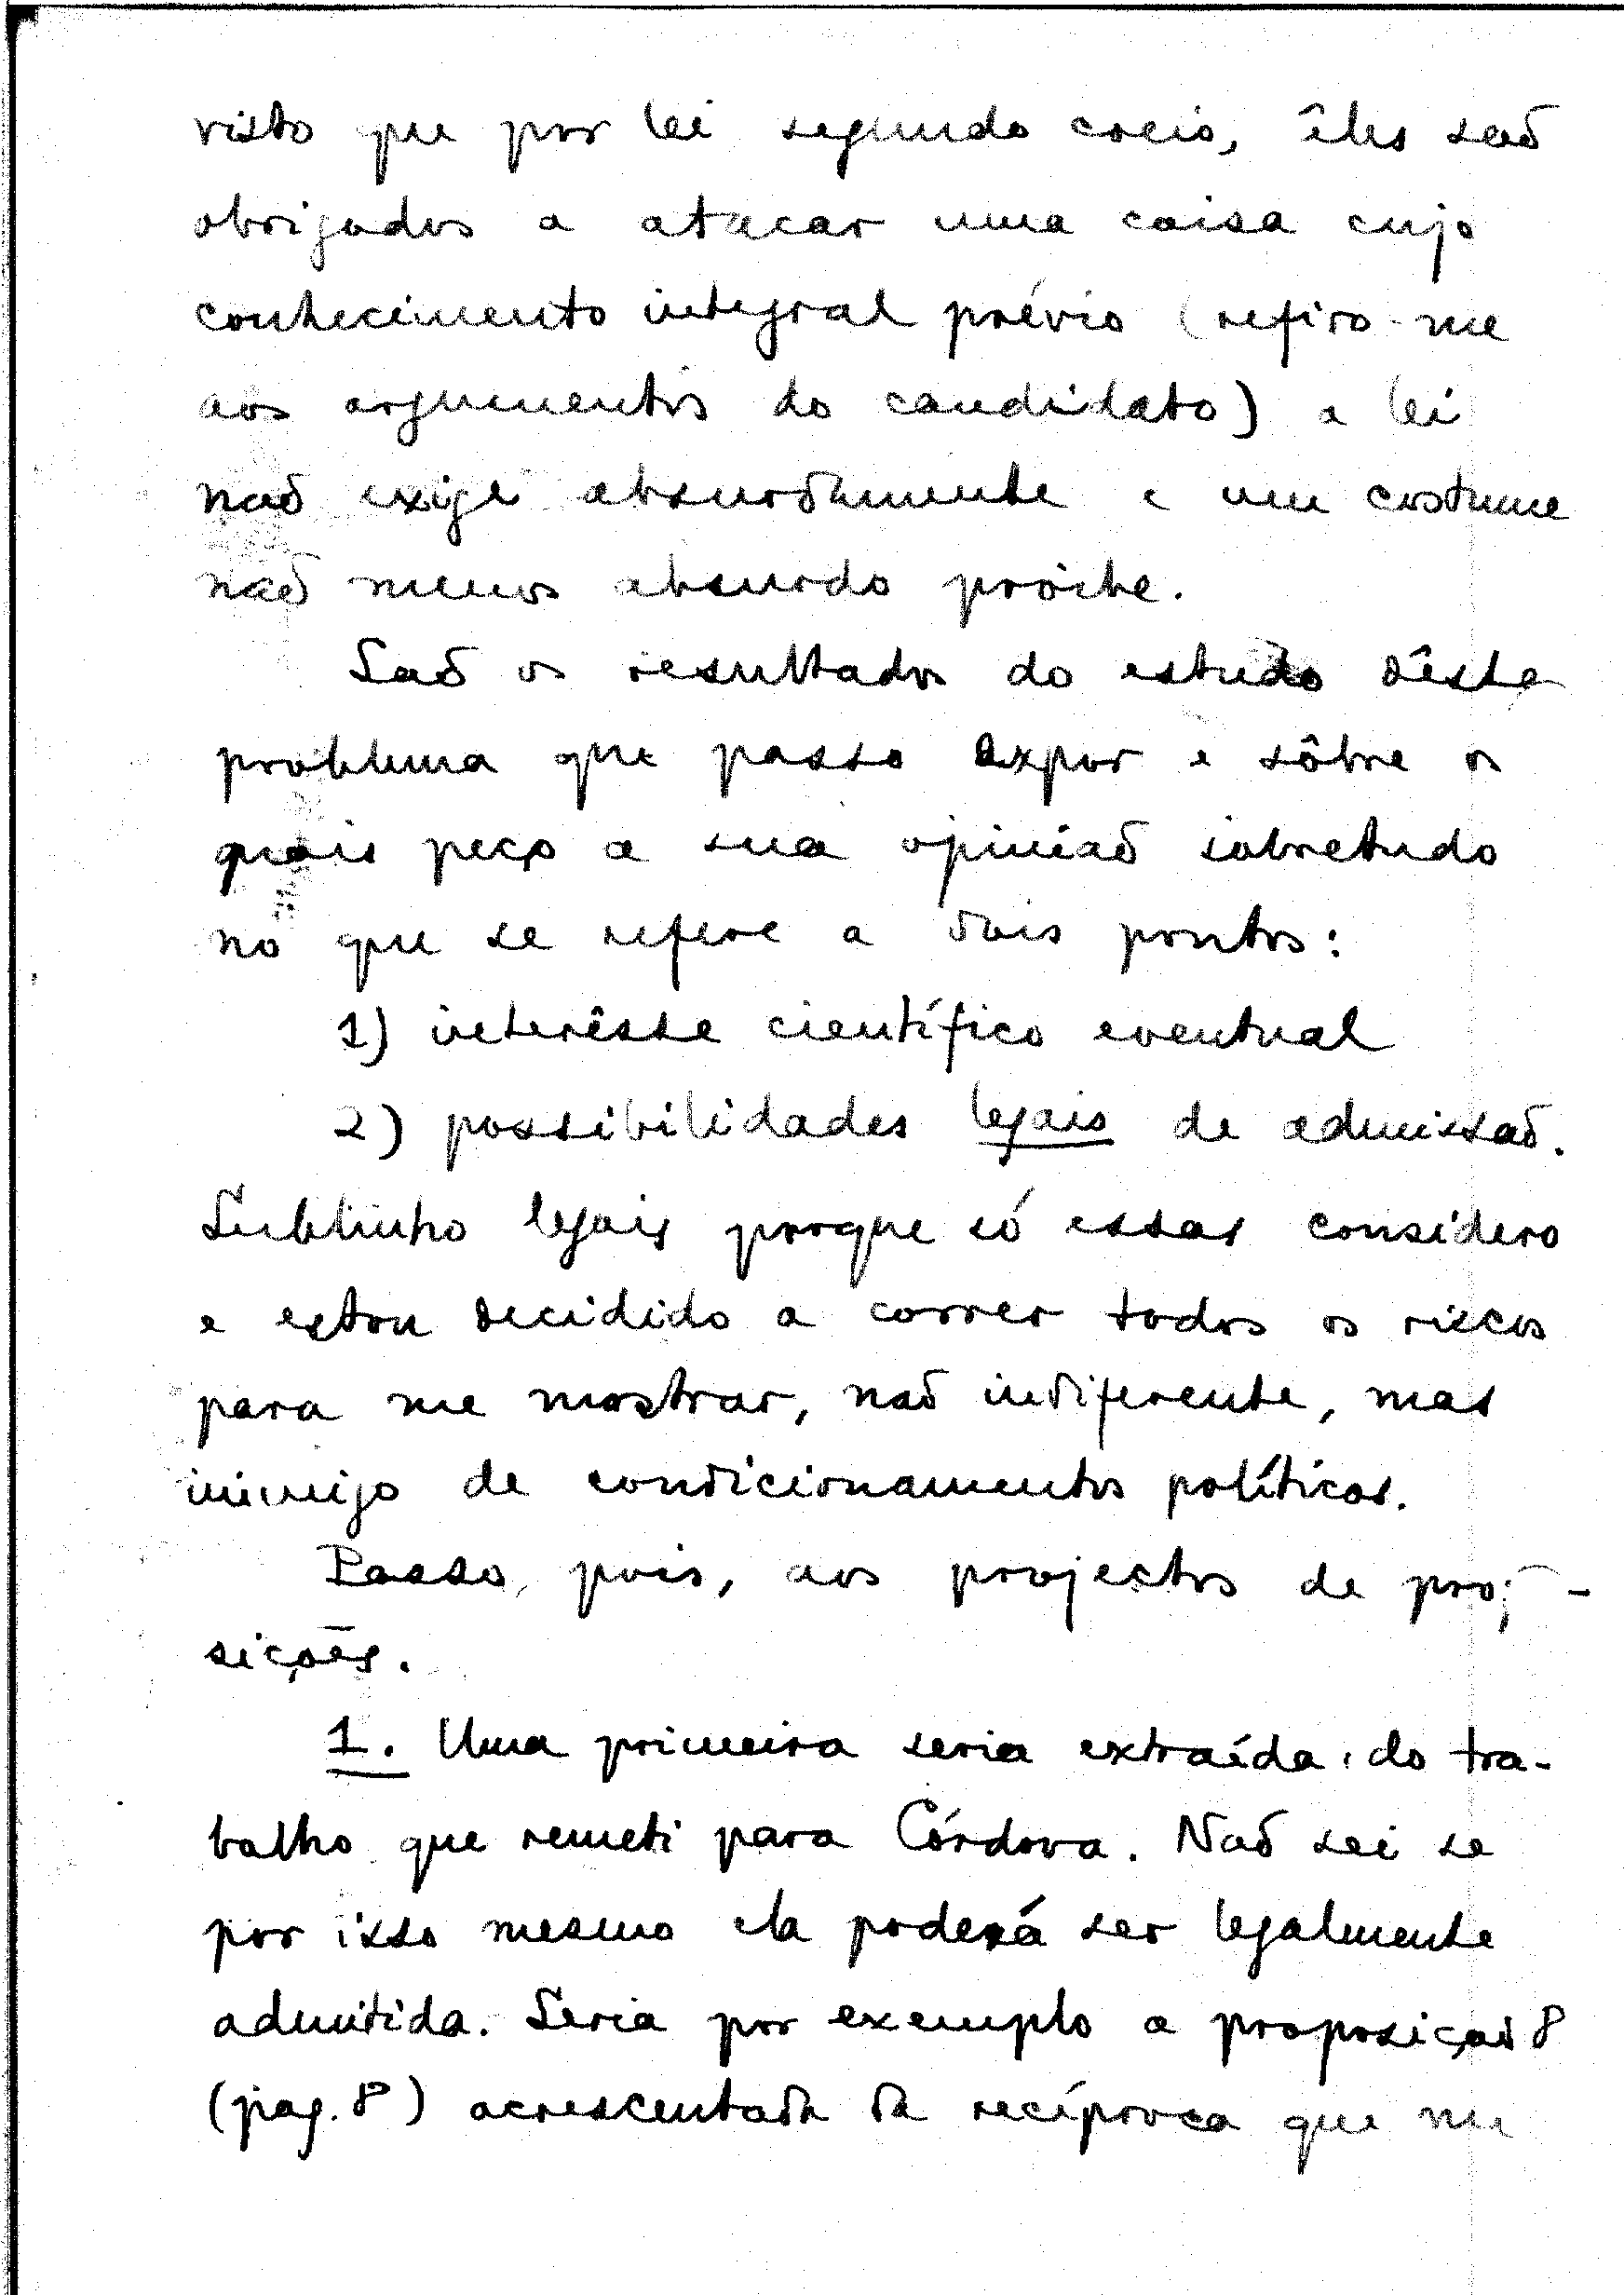 visto que por lei segundo creio, êles são
obrigados a atacar uma coisa cujo
conhecimento integral prévio (refiro-me
aos argumentos do candidato) a lei
não exige absurdamente e um costume
não menos absurdo proíbe.
São os resultados do estudo dêste
problema que passo expor e sôbre os
quais peço a sua opinião sobretudo
no que se refere a dois pontos:
1) interêsse científico eventual
2) possibilidades legais de admissão.
Sublinho legais porque só essas considero
e estou decidido a correr todos os riscos
para me mostrar, não indiferente, mas
inimigo de condicionamentos políticos.
Passo, pois, aos projectos de pro-
sições.
1. Uma primeira seria extraída do tra-
balho que remeti para Córdova. Não sei se
por isso mesmo ela poderá ser legalmente
admitida. Seria por exemplo a proposição 8
(pag. 8) acrescentada da recíproca que me